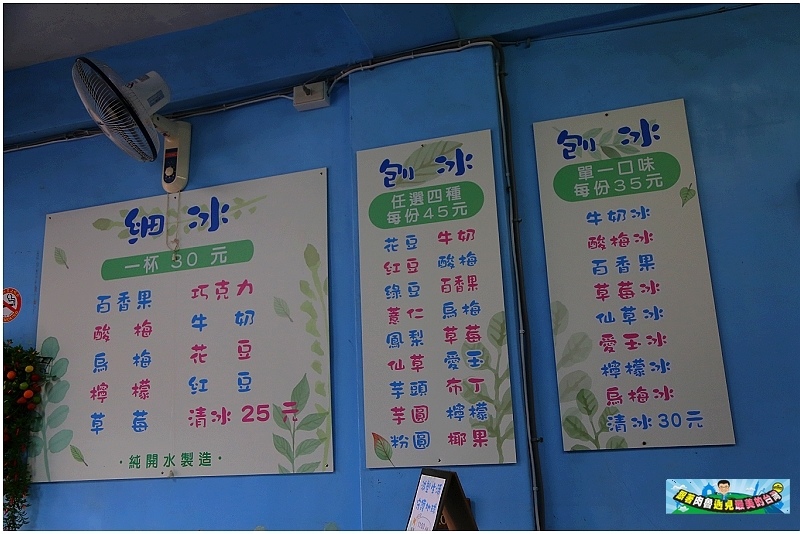 細冰
一杯 30 元
百香果 巧克力
酸梅 牛奶
烏梅 花豆
檸檬 紅豆
草莓 清冰 25 元
·純開水製造·
刨冰
任選四種
每份45元
花豆 牛奶
紅豆 酸梅
綠豆 百香果
薏仁 烏梅
鳳梨 草莓
仙草 愛玉
芋頭 布丁
芋圓 檸檬
粉圓 椰果
刨冰
單一口味
每份35元
牛奶冰
酸梅冰
百香果
草莓冰
仙草冰
愛玉冰
檸檬冰
烏梅冰
清冰30元
跟著肉魯遇見最美的台灣